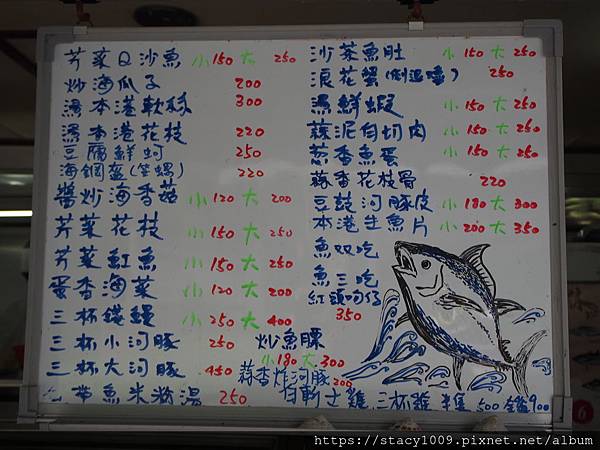 芹菜Q沙魚 小150 大250
炒海瓜子 200
燙本港軟絲 300
燙本港花枝 220
豆腐鮮蚵 250
海鋼盔(笠螺) 220
醬炒海香菇 小120 大200
芹菜花枝 小150 大250
芹菜魟魚 小150 大250
蛋香海菜 小120 大200
三杯錢鰻 小250 大400
三杯小河豚 250
三杯大河豚 450
白帶魚米粉湯 250
沙茶魚肚 小150 大250
浪花蟹(倒退嚕) 250
燙鮮蝦 小150 大250
蒜泥白切肉 小150 大250
蔥香魚蛋 小150 大250
蒜香花枝骨 220
豆鼓河豚皮 小180 大300
本港生魚片 小200 大350
魚双吃
魚三吃
紅頭吻仔 350
炒魚膘
小180 大300
蒜香炸河豚 200
白斬土雞 三杯雞 半隻500 全隻900
https://stacy1009.pixnet.net/album